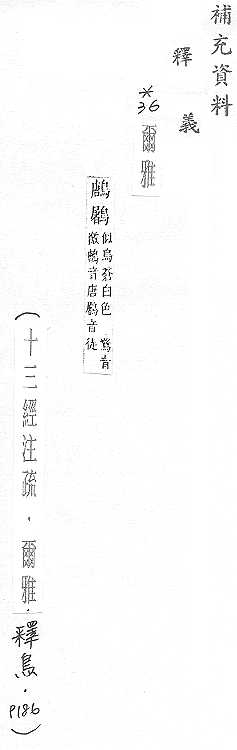 補充資料
釋義
*36 爾雅
鶶鷵
似烏蒼白色 鷩音
敝鶶音唐鷵音徒
(十三經注疏．爾雅．釋鳥．P186)